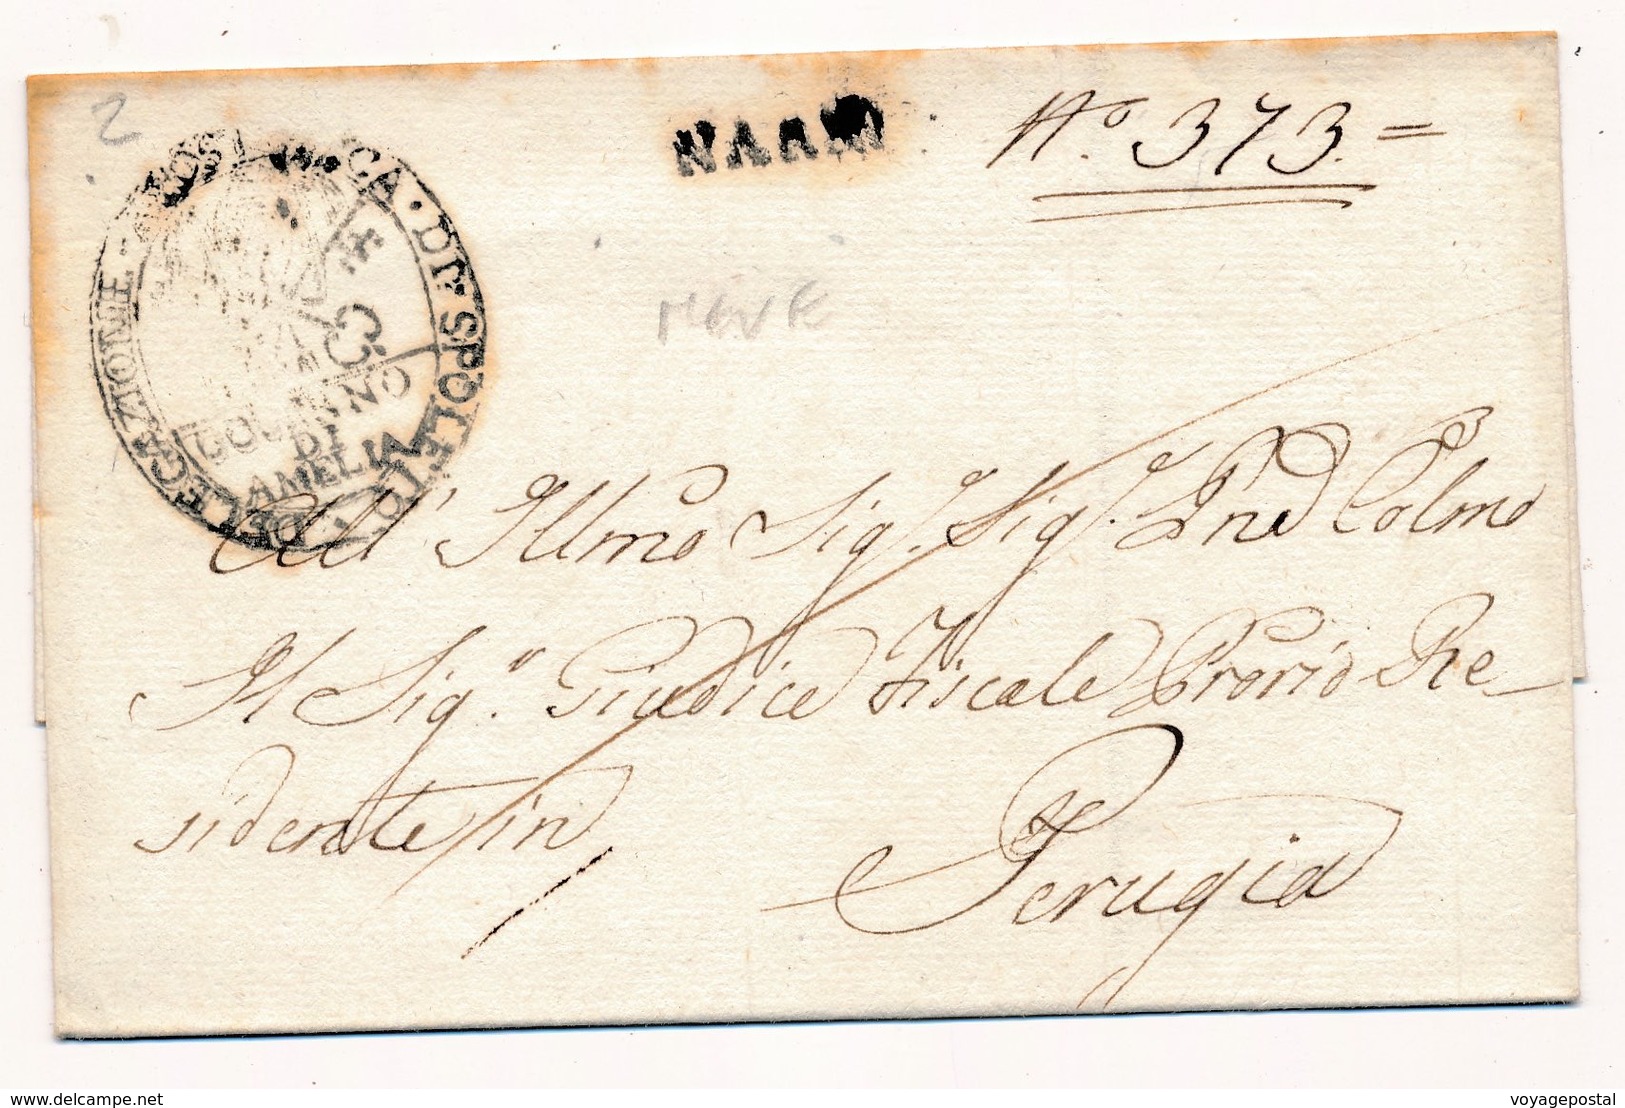 2
NARNI
Nº. 373. =
DELEGAZIONE · APOSTOLICA · DI · SPOLETO
GOVERNO
DI
AMELIA
All' Illmo Sig.r Sig.r Pne Colmo
Il Sig.r Giudice Fiscale Provrio Re_
sidente in
Perugia
delcampe.net
voyagepostal